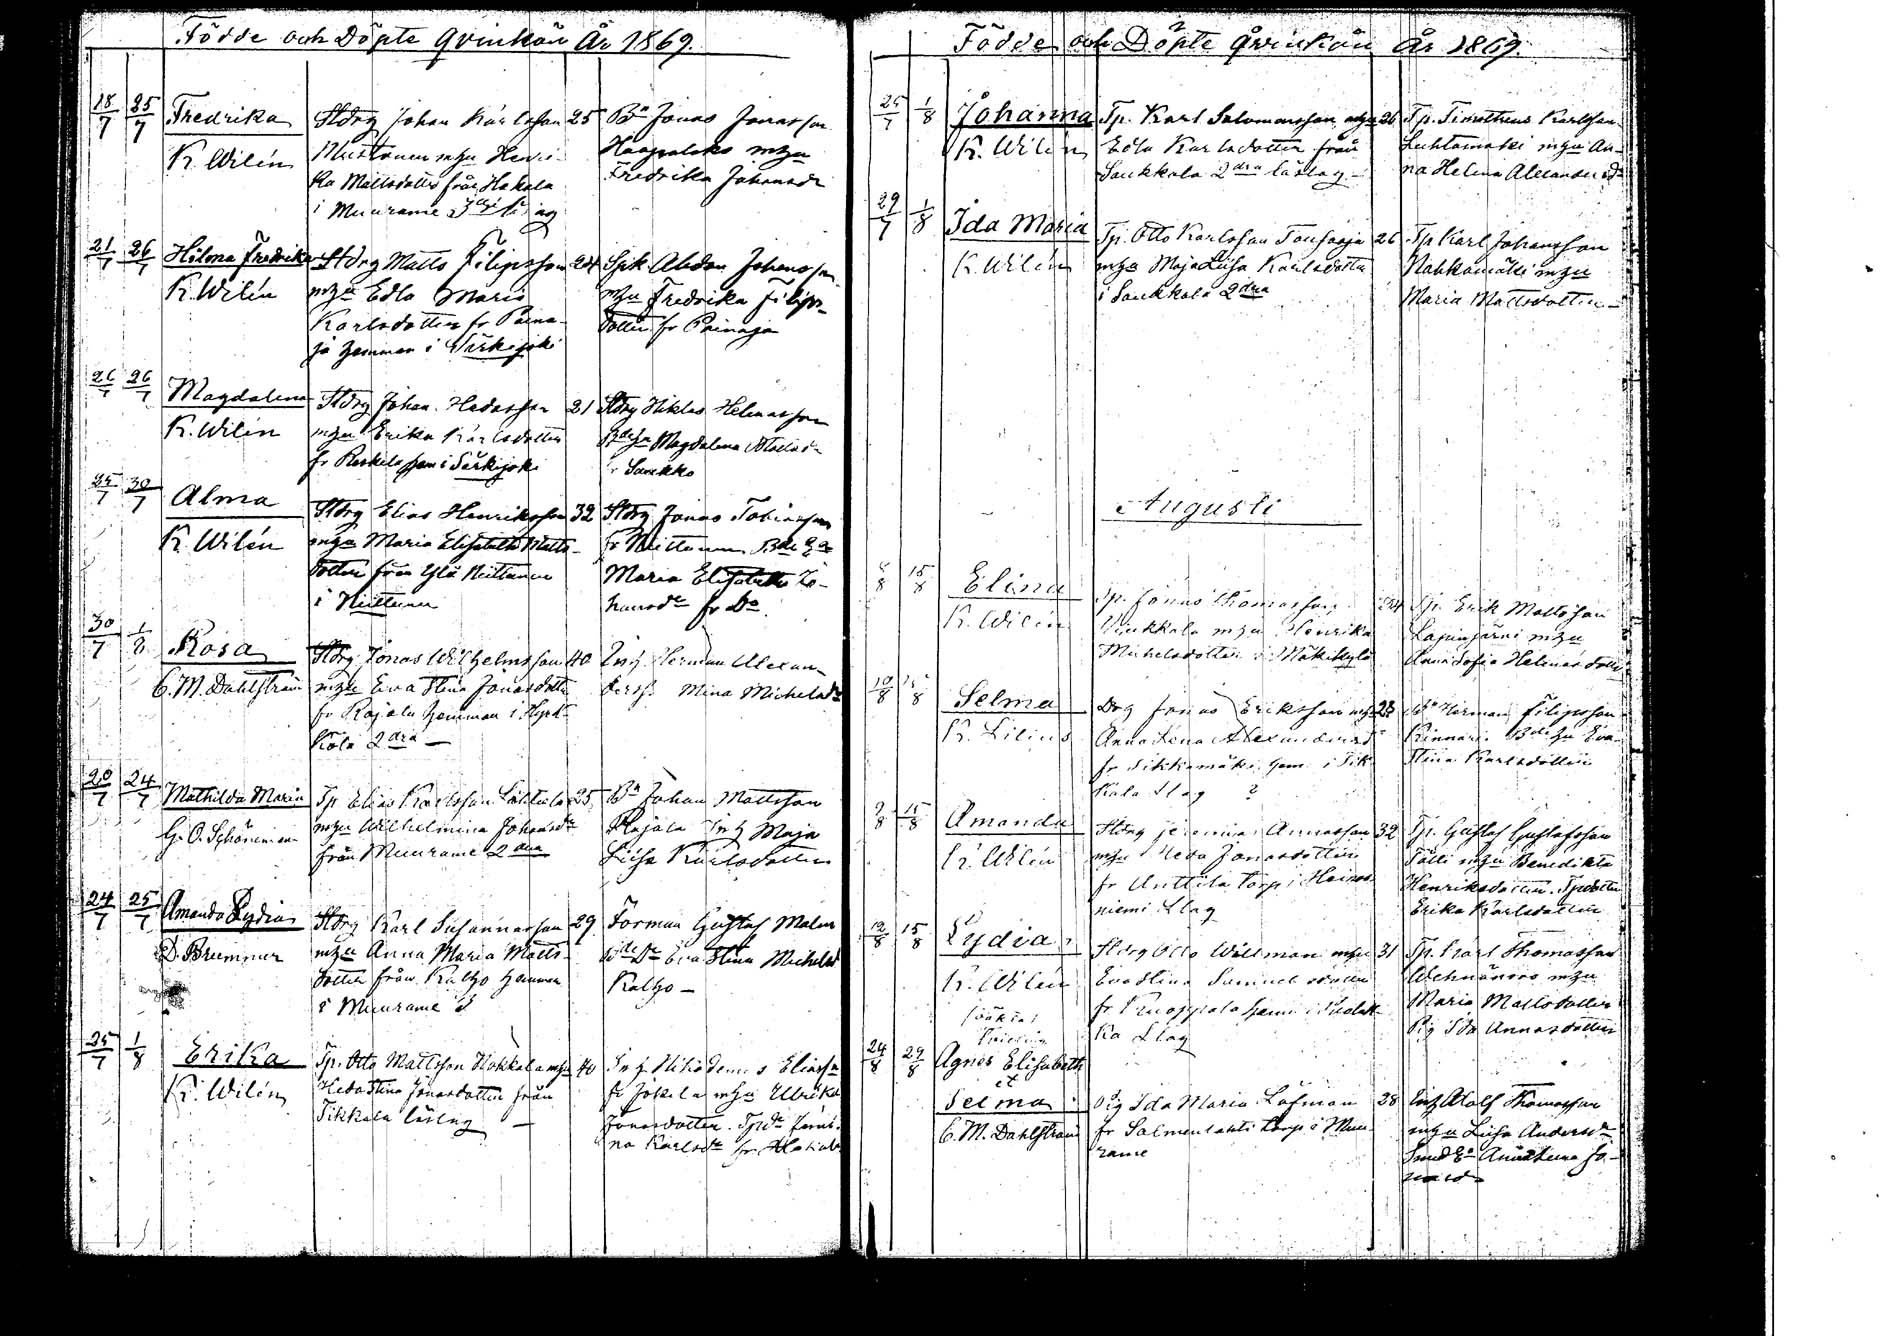 Födde och Döpte Qvinkön År 1869.
18/7 25/7 Fredrika
K. Wilén
Stdrg Johan Karlsson 25
Mustonen mzu Hevi-
ka Mattsdotter från Hakala
i Muurame
Bn Jonas Jonasson
Haapalaks mzu
Fredrika Johansdr
21/7 26/7 Hilma Fredrika
K. Wilén
Stdrg Matts Filipsson 24
mzu Edla Maria
Karlsdotter fr Paina-
ja hemman i Särkijoki
Spk Abdon Johansson
mzu Fredrika Filips-
dotter fr Painaja
26/7 26/7 Magdalena
K. Wilén
Stdrg Johan 21
mzu Erika Karlsdotter
fr hem i Särkijoki
Stdrg Niklas Helenasson
Magdalena
fr Saukko
25/7 30/7 Alma
K. Wilén
Stdrg Elias Henriksson 32
mzu Maria Elisabeth Matts-
dotter från Ylä Niittunen
i Niittunen
Stdrg Jonas Tobiasson
fr Niittunen
Maria Elisabeth Jo-
hansdr fr Do
30/7 1/8 Rosa
C. M. Dahlström
Stdrg Jonas Wilhelmsson 40
mzu Eva Stina Jonasdotter
fr Rajala hemman i
2dra —
Herman Alexan-
derss. Mina Michelsdr
20/7 24/7 Mathilda Maria
G. O. Schöneman
Tp Elias Karlsson 25
mzu Wilhelmina Johansdr
från Muurame 2dra
Bn Johan Mattsson
Rajala Maja
Liisa Karlsdotter
24/7 25/7 Amanda Lydia
D. Brummer
Stdrg Karl Susannasson 29
mzu Anna Maria Matts-
dotter från Kalho hemman
i Muurame
Forman Gustaf Malm
Eva Stina Michelsd
Kalho —
25/7 1/8 Erika
K. Wilén
Tp. Otto Mattsson Hokkala mzu 40
Heda Stina Jonasdotter från
Tikkala låslag —
Nikodemus Eliassn
fr Jokela mzu Ulrika
Jonasdotter. Tpdr
na Karlsdr fr
Födde och Döpte Qvinkön År 1869.
25/7 1/8 Johanna
K. Wilén
Tp. Karl Salomonsson mzu 26
Edla Karlsdotter från
Saukkola 2dra låslag —
Tp. Timotheus Karlsson
Luhtamäki mzu An-
na Helena Alexandersdr
29/7 1/8 Ida Maria
K. Wilén
Tp. Otto Karlsson 26
mzu Maja Liisa Karlsdotter
i Saukkola 2dra
Tp Karl Johansson
Nahkamäki mzu
Maria Mattsdotter —
Augusti
8/8 15/8 Elina
K. Wilén
Tp. Jonas Thomasson 24
mzu Henrika
Michelsdotter i Mäkikylä
Tp. Erik Mattsson
Lapinjärvi mzu
Anna Sofia Helenasdotter
10/8 15/8 Selma
K. Lilius
Drg Jonas Eriksson mzu 23
Anna Lena Alexandersdr
fr Sikkamäki hem. i Tik-
kala Slag ?
Herman Filipsson
Kinnari. Eva
Stina Karlsdotter
9/8 15/8 Amanda
K. Wilén
Stdrg Jeremias Annasson 32
mzu Heda Jonasdotter
fr Anttila torp i Heinos-
niemi Slag
Tp. Gustaf Gustafsson
Tälli mzu Benedikta
Henriksdotter. Tpdotter
Erika Karlsdotter
12/8 15/8 Lydia
K. Wilén
Stdrg Otto Willman mzu 31
Eva Stina Samuelsdotter
fr Ruoppala hem i
ka Slag
Tp. Karl Thomasson
mzu
Maria Mattsdotter
Pig Ida Annasdotter
24/8 29/8 Agnes Elisabeth
et
Selma
C. M. Dahlström
Pig Ida Maria Löfman 38
fr Salmenlahti torp i Muu-
rame
Adolf Thomasson
mzu Liisa Andersdr
Anna Lena Jo-